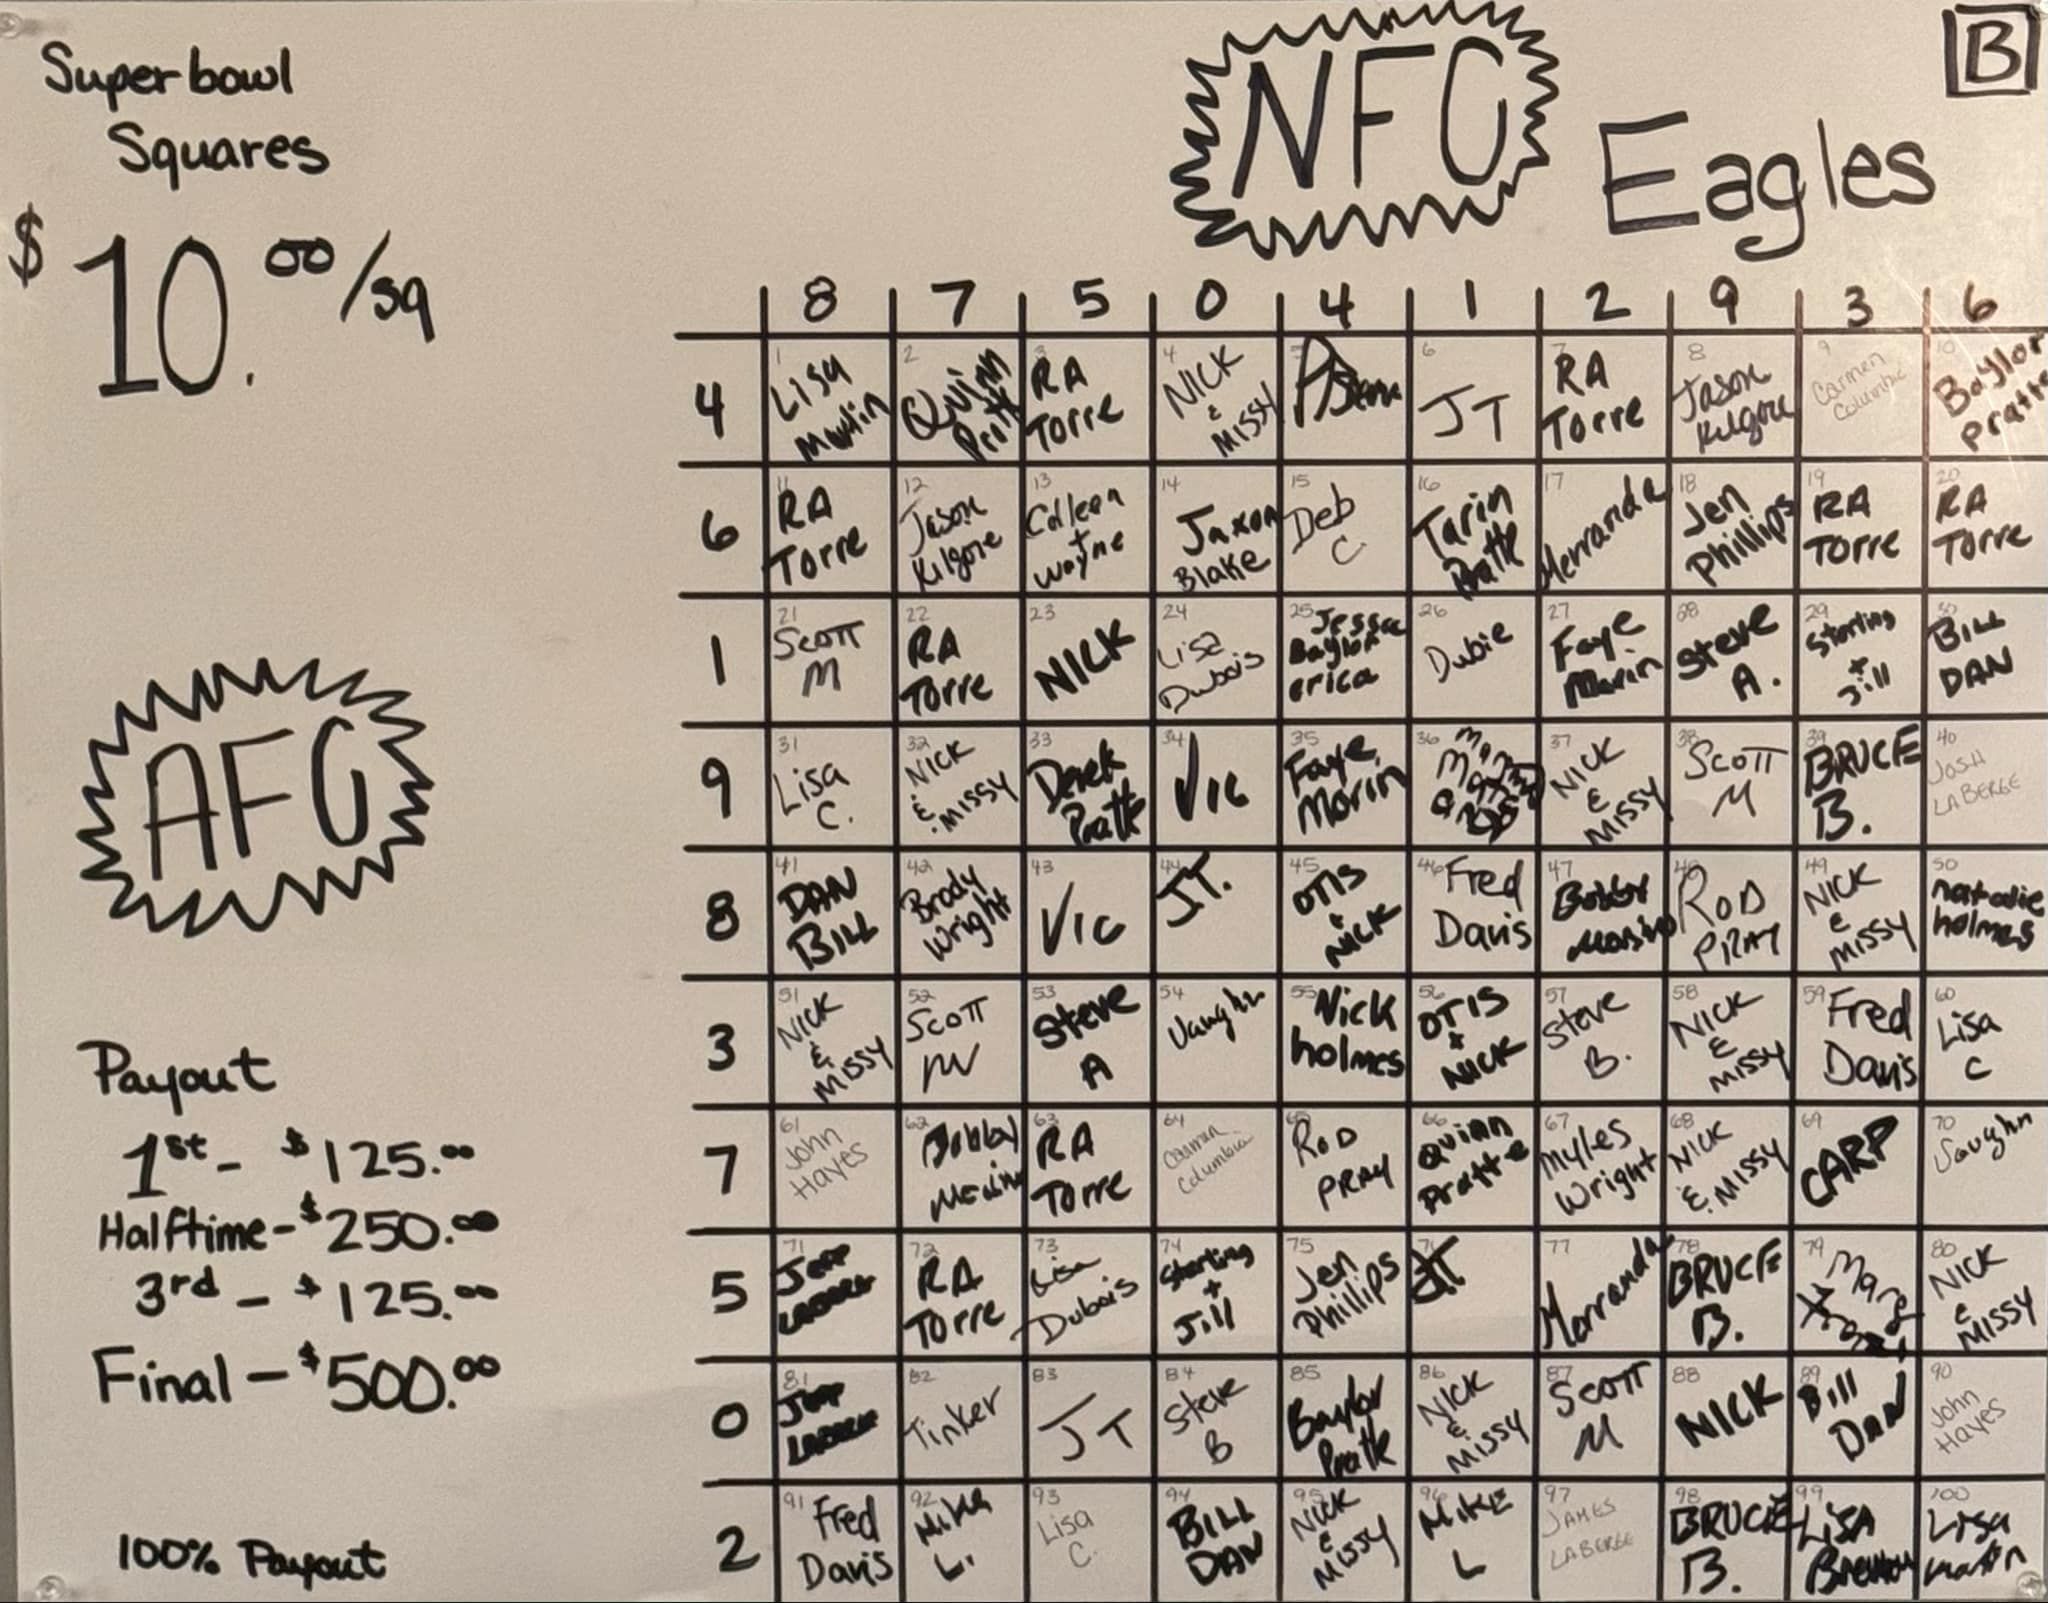 Superbowl
Squares
$10.00/sq
NFC
Eagles
B
AFC
Payout
1st - $125.00
Halftime - $250.00
3rd - $125.00
Final - $500.00
100% Payout
8 7 5 0 4 1 2 9 3 6
4
1 Lisa
2 Quinn
3 RA Torre
4 NICK & MISSY
6 JT
7 RA Torre
8 Jason Kilgore
9 Carmen
10 Baylor Pratte
6
11 RA Torre
12 Jason Kilgore
13 Colleen + Wayne
14 Jaxon Blake
15 Deb C
16 Tarin
17 Merranda
18 Jen Phillips
19 RA Torre
20 RA Torre
1
21 Scott M
22 RA Torre
23 NICK
24 Lisa Dubois
25 Jesse Baylor erica
26 Dubie
27 Faye Morin
28 Steve A.
29 Sterling + Jill
30 BILL DAN
9
31 Lisa C.
32 NICK & MISSY
33 Derek Pratte
34 Vic
35 Faye Morin
36
37 NICK & MISSY
38 Scott M
39 BRUCE B.
40 JOSH LABERGE
8
41 DAN BILL
42 Brody Wright
43 Vic
44 J.T.
45 OTIS & NICK
46 Fred Davis
47 Bobby
48 ROD PRAY
49 NICK & MISSY
50 natalie holmes
3
51 NICK & MISSY
52 Scott M
53 Steve A
54 Vaughn
55 Nick holmes
56 OTIS + NICK
57 Steve B.
58 NICK & MISSY
59 Fred Davis
60 Lisa C
7
61 John Hayes
62 Bobby
63 RA Torre
64 Carmen Columbia
65 ROD PRAY
66 Quinn Pratte
67 Myles Wright
68 NICK & MISSY
69 CARP
70 Vaughn
5
71 Jeff
72 RA Torre
73 Lisa Dubois
74 Sterling + Jill
75 Jen Phillips
76 JT
77 Merranda
78 BRUCE B.
79
80 NICK & MISSY
0
81 Jeff
82 Tinker
83 JT
84 Steve B
85 Baylor Pratte
86 NICK & MISSY
87 Scott M
88 NICK
89 Bill DAN
90 John Hayes
2
91 Fred Davis
92 Mike L.
93 Lisa C.
94 BILL DAN
95 NICK & MISSY
96 MIKE L
97 JAMES LABERGE
98 BRUCE B.
99 LISA
100 Lisa